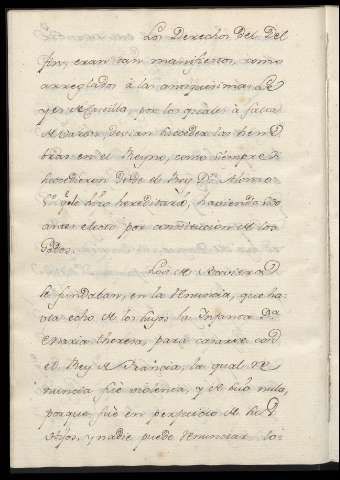 Los Derechos del Del
fin, eran tan manifiestos, como
arreglados à la antiquisima Le
yes de Castilla, por los quales à falta
de Varon, devian succeder las hem
bras en el Reyno, como siempre
succedieron desde el Rey Dn Alonso
que lo hizo hereditario, haviendo sido
antes electo por constitucion de los
Godos.
Los de Baviera
se fundaban, en la renuncia, que ha
via echo de los hijos la Infanta Da
Maria theresa, para casarse con
el Rey de Francia, la qual re
nuncia fuè violenta, y de hilo nula,
porque fuè en perjuicio de su
hijos, y nadie puede renunciar lo